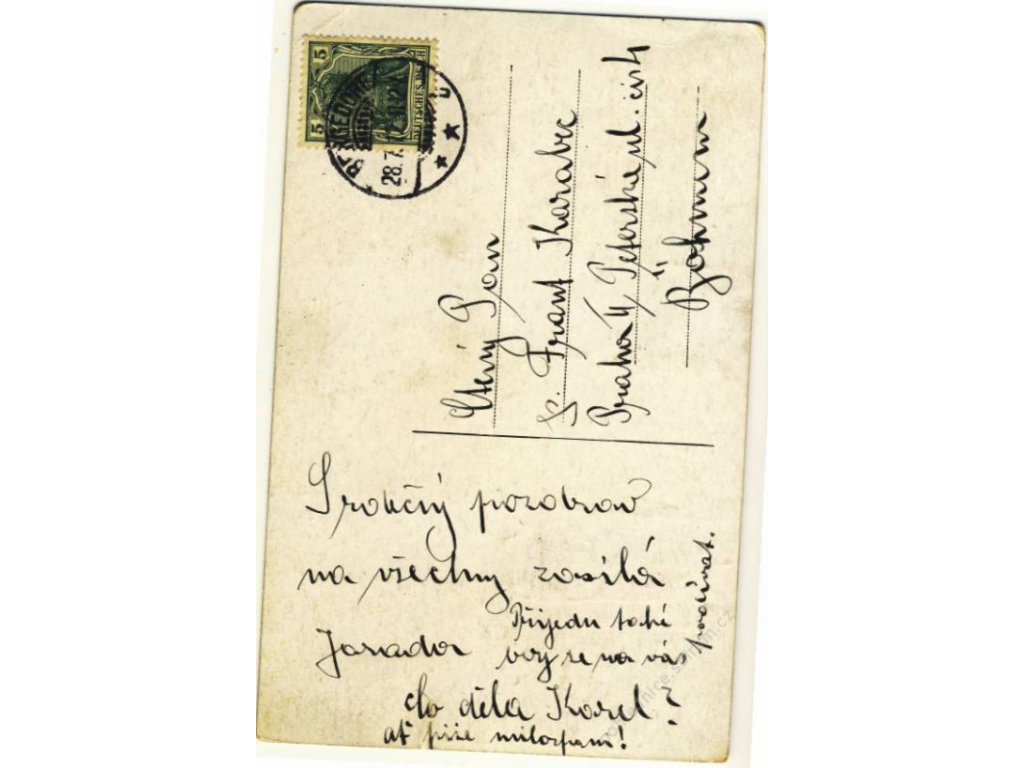 5 5
DEUTSCHES REICH
28.7.
Ctěný Pan
p. Frant Karabec
Praha II, Peterské nl. čís 4
Böhmen
Srdečný pozdrav
na všechny zasílá
Přijedu také
se na vás podívat.
Co dělá Karel?
ať píše